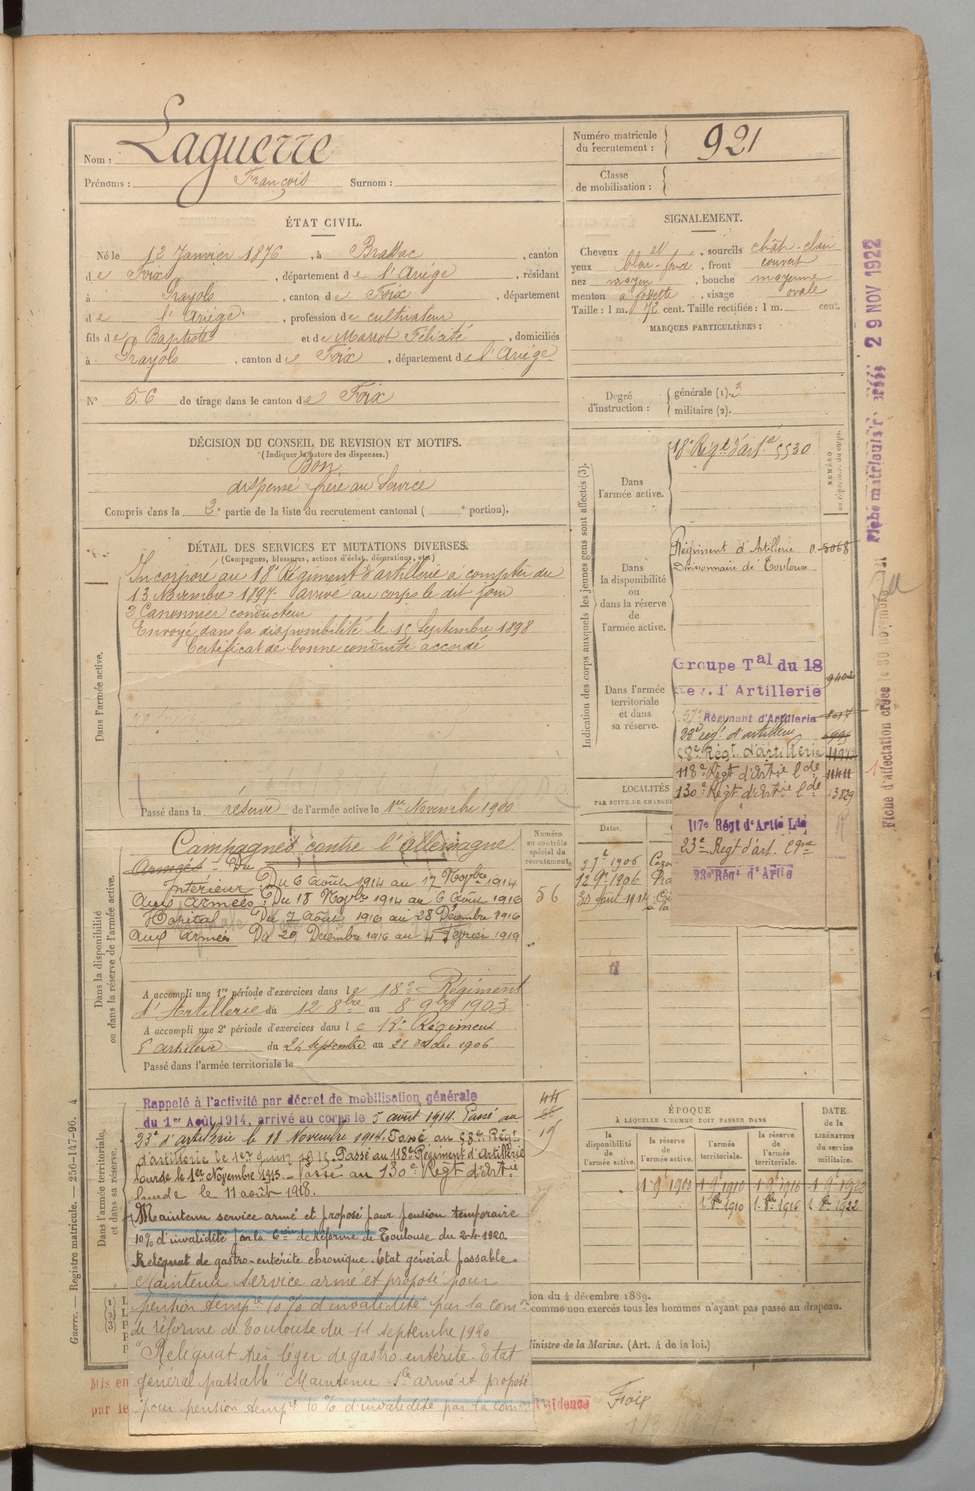 Nom : Laguerre
Prénoms : François Surnom :
Numéro matricule du recrutement : 921
Classe de mobilisation :
ÉTAT CIVIL.
Né le 12 Janvier 1876, à Brassac, canton
de Foix, département de l'Ariège, résidant
à Prayols, canton de Foix, département
de l'Ariège, profession de cultivateur
fils de Baptiste et de Marrot Félicité, domiciliés
à Prayols, canton de Foix, département de l'Ariège
N° 56 de tirage dans le canton de Foix
SIGNALEMENT.
Cheveux et sourcils chât-clair
yeux , front couvert
nez moyen, bouche moyenne
menton à fossette, visage ovale
Taille : 1 m. 72 cent. Taille rectifiée : 1 m. cent.
MARQUES PARTICULIÈRES :
Degré d'instruction : générale (1). 3
militaire (2).
DÉCISION DU CONSEIL DE REVISION ET MOTIFS.
(Indiquer la nature des dispenses.)
Bon
dispensé frère au Service
Compris dans la 3e partie de la liste du recrutement cantonal ( e portion).
DÉTAIL DES SERVICES ET MUTATIONS DIVERSES.
(Campagnes, blessures, actions d'éclat, décorations, etc.)
Dans l'armée active.
Incorporé au 18e Régiment d'artillerie à compter du
13 Novembre 1897. Arrivé au corps le dit jour
2e Canonnier conducteur
Envoyé dans la disponibilité le 15 Septembre 1898
Certificat de bonne conduite accordé
Passé dans la réserve de l'armée active le 1er Novembre 1900
Indication des corps auxquels les jeunes gens sont affectés (3).
Dans l'armée active.
18e Régt d'artie 5530
Dans la disponibilité ou dans la réserve de l'armée active.
Régiment d'Artillerie 0.5068
Divisionnaire de Toulouse
Dans l'armée territoriale et dans sa réserve.
Groupe Tal du 18
Rég. d'Artillerie
57e Régiment d'Artillerie
23e régt d'artillerie
58e Régt d'artillerie
118e Régt d'Artie lde
130e Régt d'Artie lde 13829
117e Régt d'Artie Lde
23e Régt d'art. Cgne
23e Régt d'Artie
LOCALITÉS
Dates.
12 9e 1906
Dans la disponibilité ou dans la réserve de l'armée active.
Campagnes contre l'Allemagne
Numéro au contrôle spécial du recrutement.
56
Intérieur : Du 6 Août 1914 au 17 Novbre 1914
Aux Armées : Du 18 Novbre 1914 au 6 Août 1916
Hôpital Du 7 Août 1916 au 28 Décembre 1916
Aux Armées Du 29 Décembre 1916 au 4 Février 1919
A accompli une 1re période d'exercices dans le 18e Régiment
d'Artillerie du 12 8bre au 8 9bre 1903
A accompli une 2e période d'exercices dans le 18e Régiment
d'artillerie du 24 septembre au 21 octobre 1906
Passé dans l'armée territoriale le
Dans l'armée territoriale et dans sa réserve.
Rappelé à l'activité par décret de mobilisation générale
du 1er Août 1914, arrivé au corps le 5 août 1914. Passé au
23e d'artillerie le 18 Novembre 1914. Passé au 58e Régt
d'artillerie le 1er Juin 1915. Passé au 118e Régiment d'Artillerie
lourde le 1er Novembre 1915. Passé au 130e Régt d'Artie
lourde le 11 août 1918.
Maintenu service armé et proposé pour pension temporaire
10% d'invalidité par la Con de Réforme de Toulouse du 2-4-1920
Reliquat de gastro-entérite chronique. Etat général passable.
Maintenu service armé et proposé pour
pension tempre 10% d'invalidité par la comon
de réforme de Toulouse du 11 septembre 1920
"Reliquat très léger de gastro entérite. Etat
général passable" Maintenu Sce armé et proposé
pour pension tempre 10% d'invalidité par la comon
ÉPOQUE
À LAQUELLE L'HOMME DOIT PASSER DANS
la disponibilité de l'armée active.
la réserve de l'armée active.
l'armée territoriale.
la réserve de l'armée territoriale.
DATE DE LA LIBÉRATION du service militaire.
1 9e 1900
1 9e 1910
1 9e 1916
1 9e 1920
1910
1916
1922
ion du 4 décembre 1889.
comme non exercés tous les hommes n'ayant pas passé au drapeau.
Ministre de la Marine. (Art. 4 de la loi.)
Mis en
par le
Foix
Guerre. — Registre matricule. — 256-147-96. 4
29 NOV 1922